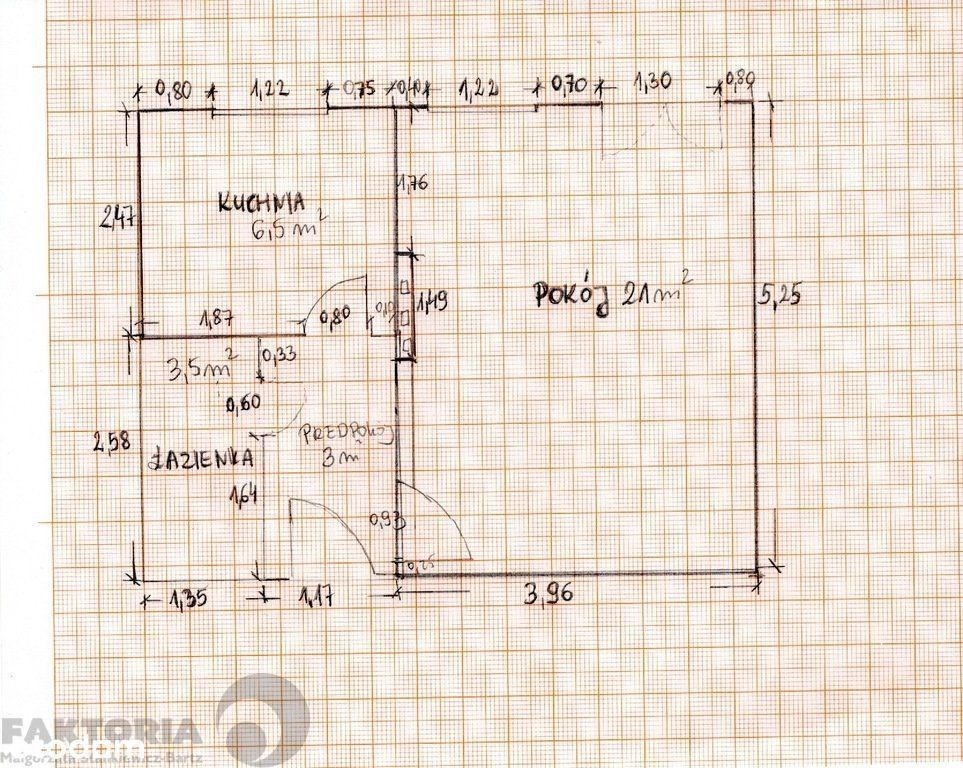 0,80 1,22 0,75 0,40 1,22 0,70 1,30 0,80
1,76
KUCHNIA
6,5 m²
2,47
POKÓJ 21 m²
5,25
1,49
1,87
0,80
3,5 m²
0,33
0,60
PRZEDPOKÓJ
3 m²
2,58
ŁAZIENKA
1,64
0,93
0,25
1,35 1,17 3,96
FAKTORIA
Małgorzata Stankiewicz-Bartz